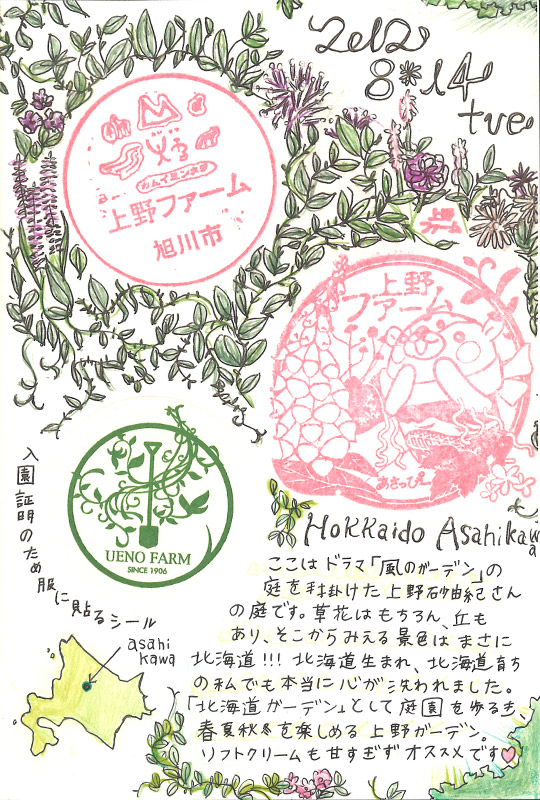 2012
8*14
tue
カムイミンタラ
上野ファーム
旭川市
上野
ファーム
上野
ファーム
あさっぴー
UENO FARM
SINCE 1906
入園証明のため服
に貼るシール
asahi
kawa
Hokkaido Asahikawa
ここはドラマ「風のガーデン」の
庭を手掛けた上野砂由紀さん
の庭です。草花はもちろん、丘も
あり、そこからみえる景色はまさに
北海道!!! 北海道生まれ、北海道育ち
の私でも本当に心が洗われました。
「北海道ガーデン」として庭園を歩るき
春夏秋冬を楽しめる上野ガーデン。
ソフトクリームも甘すぎずオススメです♡